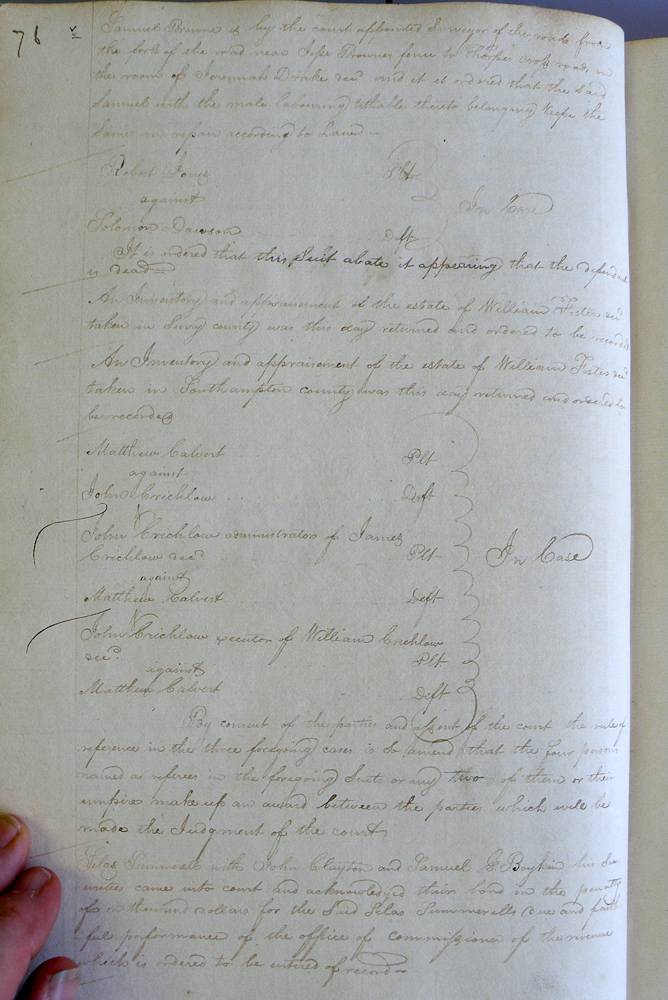 76
Samuel Browne is by the court appointed Surveyor of the road from
the fork of the road near Jesse Brownes fence to cross roads in
the room of Jeremiah Drake decd and it is ordered that the said
Samuel with the male labouring tithables thereto belonging keep the
same in repair according to Law
Robert Jones Plt
against In Case
Solomon Dawson Deft
It is ordered that this Suit abate it appearing that the defendant
is dead
An Inventory and appraisement of the estate of William decd
taken in Surry county was this day returned and ordered to be recorded
An Inventory and appraisement of the estate of William decd
taken in Southampton county was this day returned and ordered to
be recorded
Matthew Calvert Plt
against
John Crichlow Deft
John Crichlow administrator of James
Crichlow decd Plt In Case
against
Matthew Calvert Deft
John Crichlow executor of William Crichlow
decd Plt
against
Matthew Calvert Deft
By consent of the parties and assent of the court the rule of
reference in the three foregoing cases is so amend that the four persons
named as referees in the foregoing Suits or any two of them or their
umpire make up an award between the parties which will be
made the Judgment of the court
Silas Summerell with John Clayton and Samuel G Boykin his Se
curities came into court and acknowledged their bond in the penalty
of a thousand dollars for the Said Silas Summerells due and faith
ful performance of the office of commissioner of the revenue
which is ordered to be entered of record